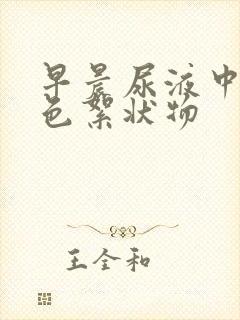 早晨尿液中
色絮状物
王全和